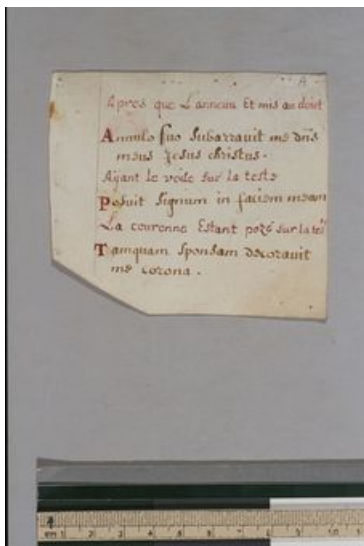 A
Apres que L'anneau Et mis au doint
Annulo suo subarravit me dn̄s
meus Jesus christus.
Ayant le voile sur la teste
Posuit signum in faciem meam
La couronne Estant pozé sur la
Tamquam sponsam decoravit
me corona.
cm 1 2 3 4 5 6 7 8 9 10